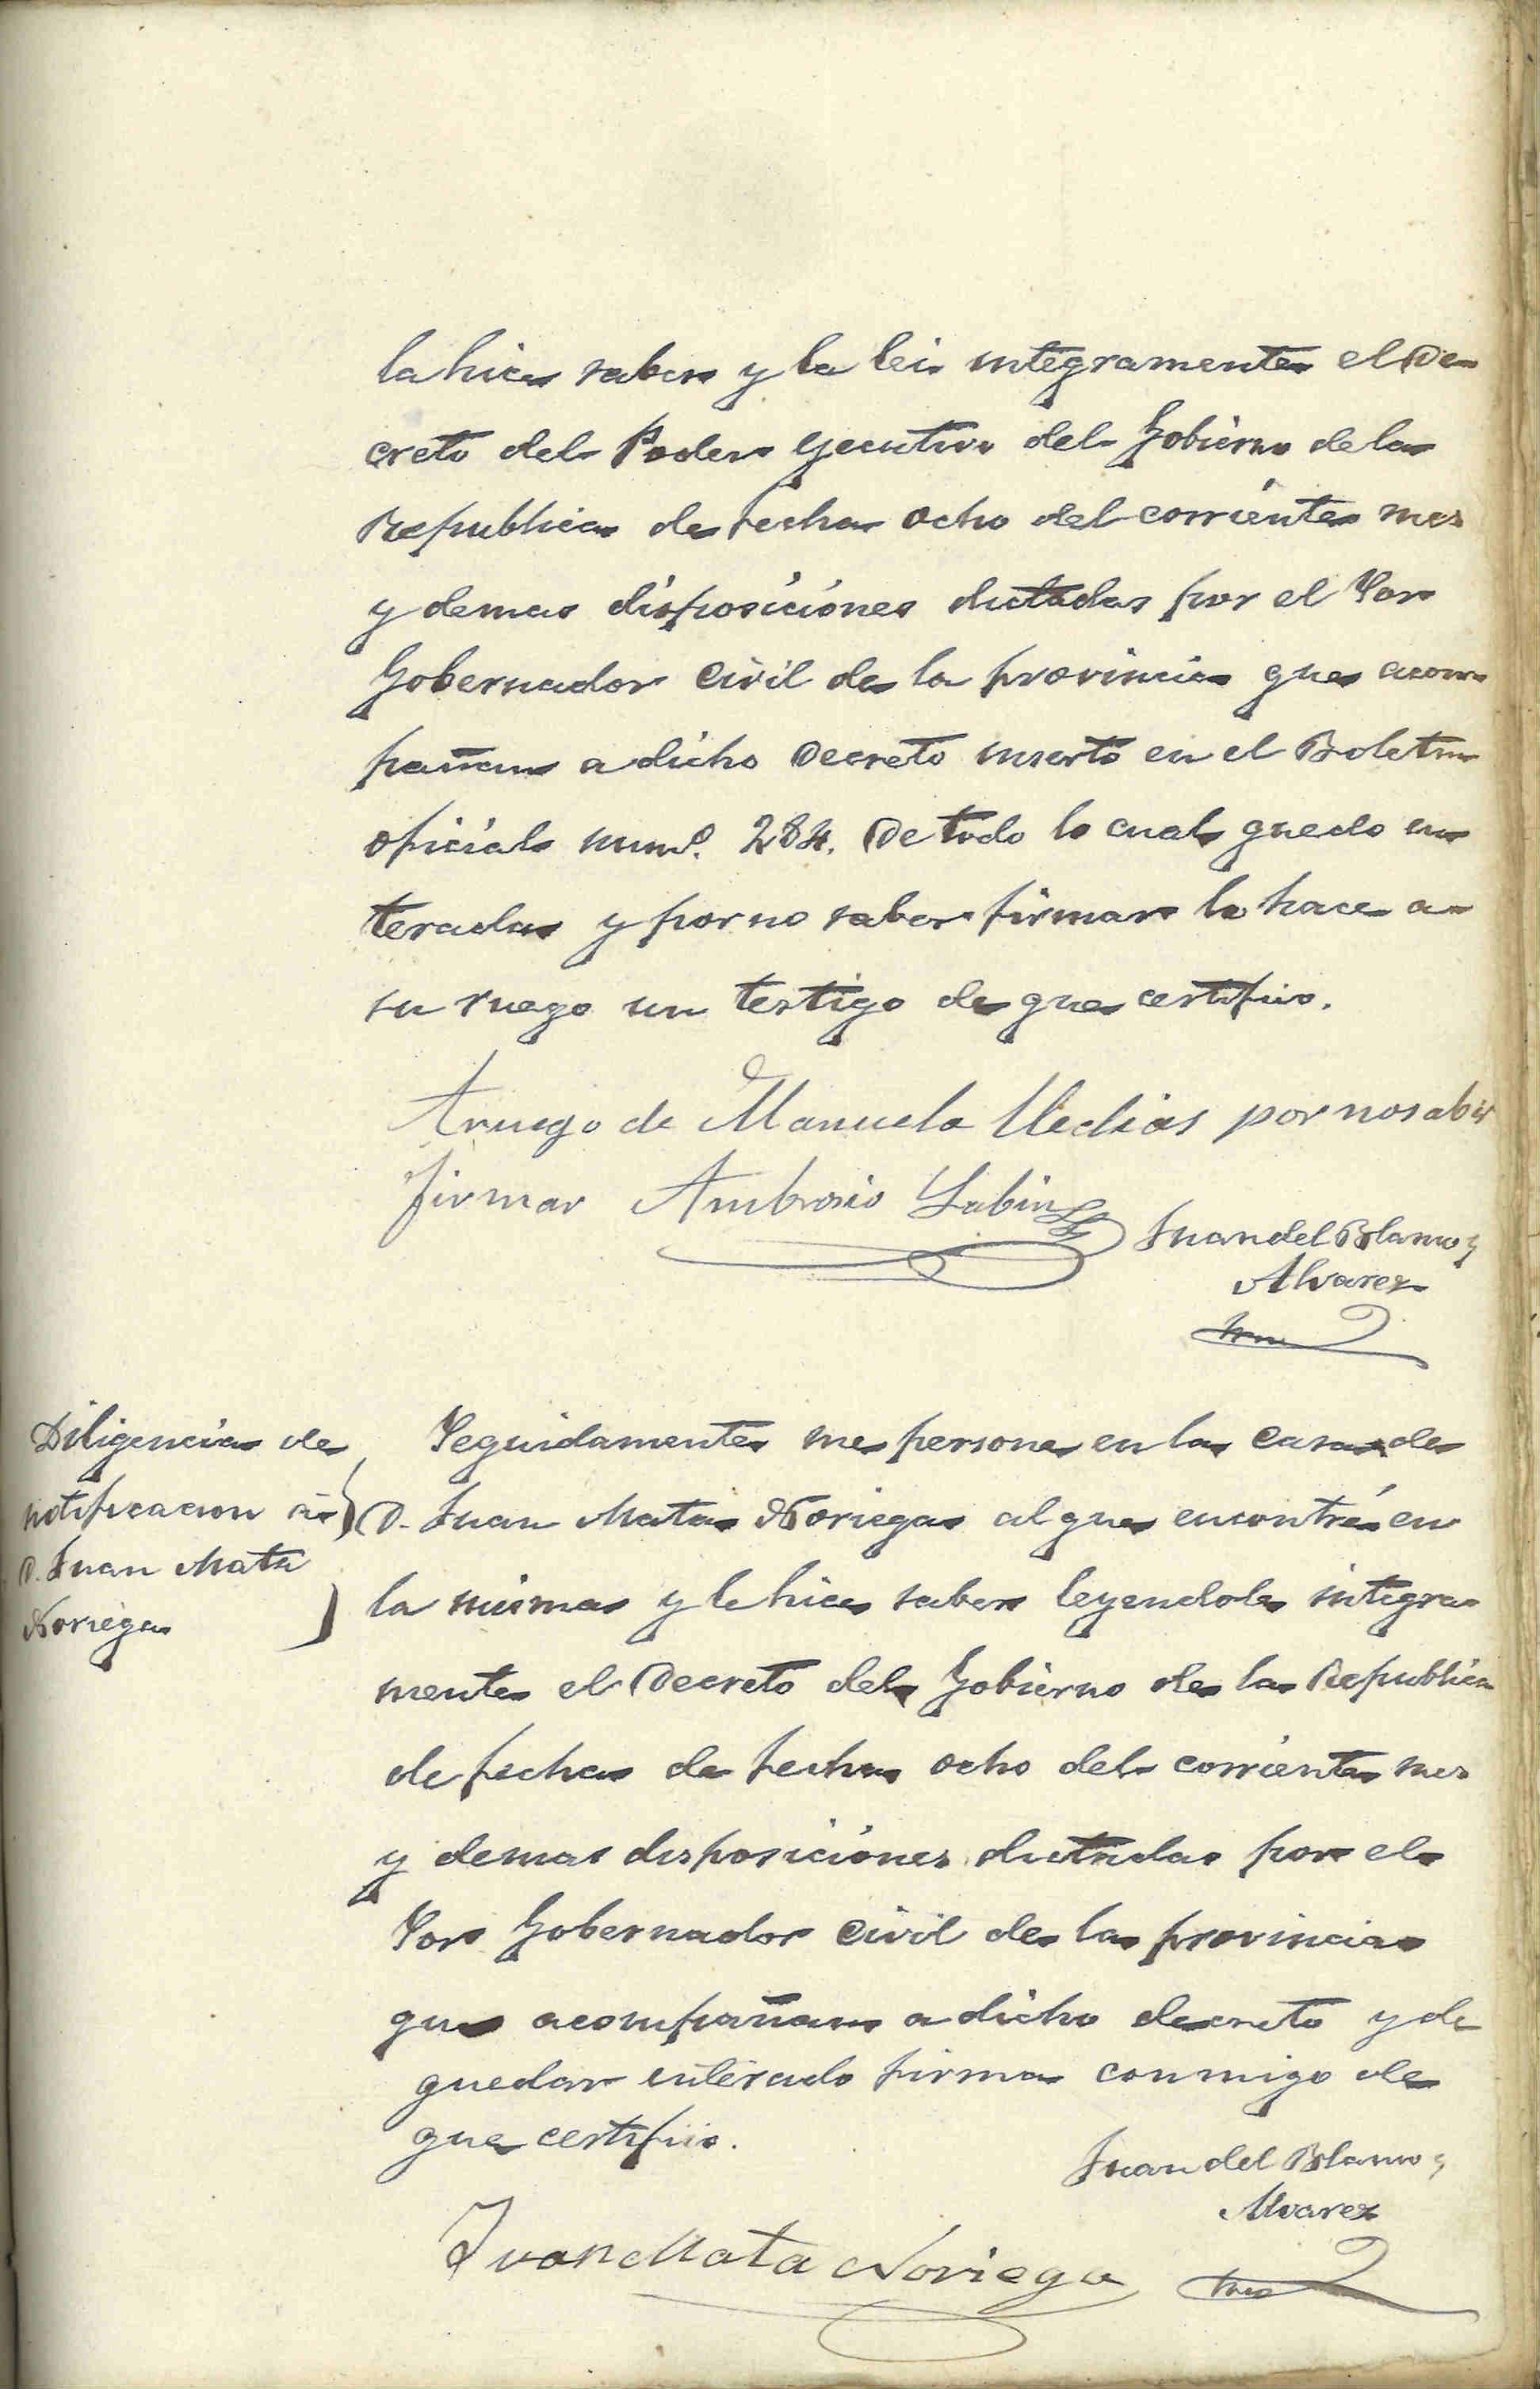 la hice saber y la lei integramente el De-
creto del Poder ejecutivo del Gobierno de la
Republica de fecha ocho del corriente mes
y demas disposiciones dictadas por el Sor
Gobernador Civil de la provincia que acom-
pañan a dicho Decreto inserto en el Boletin
oficial numº. 284. De todo lo cual quedo en-
terada y por no saber firmar lo hace a
su ruego un testigo de que certifico.
Aruego de Manuela Medias por no saber
firmar Ambrosio Labin
Juan del Blanco y
Alvarez
Diligencia de
notificacion á
D. Juan Mata
Noriega
Seguidamente me persone en la casa de
D. Juan Mata Noriega al que encontré en
la misma y le hice saber leyendole integra-
mente el Decreto del Gobierno de la Republica
de fecha de fecha ocho del corriente mes
y demas disposiciones dictadas por el
Sor Gobernador Civil de la provincia
que acompañan a dicho decreto y de
quedar enterado firma conmigo de
que certifico.
Juan del Blanco y
Alvarez
Juan Mata Noriega